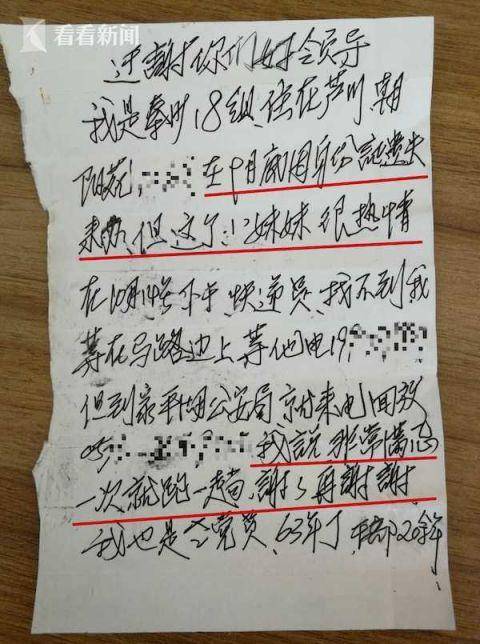 看看新闻
谢你们好领导
我是 18组、住在芦川朝
阳苑 在9月 因身份証遗失
来 、但这个小妹妹很热情
在10月14号下午、快递员、找不到我
等在马路边上等他电19
但到 公安局、 来电回放
05 我説非常满意
一次就跑一趟、謝了再謝謝
我也是 党员、63年了、干部20余年